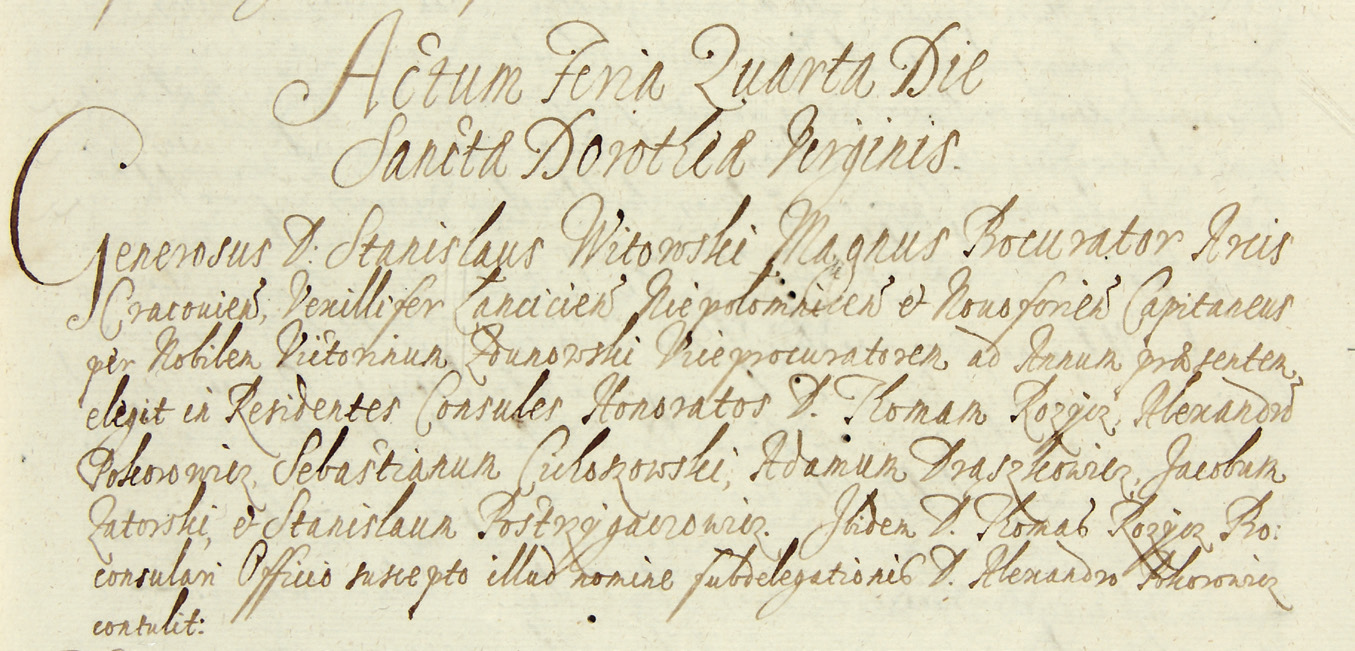 Actum Feria Quarta Die
Sanctæ Dorotheæ Virginis.
Generosus D: Stanislaus Witowski Magnus Procurator Arcis
Cracovien, Vexillifer Lancicien Niepolomicen et Novoforien Capitaneus
per Nobilem Victorinum Zdunowski Viceprocuratorem ad Annum præsentem,
elegit in Residentes Consules Honoratos D. Thomam Rozycz, Alexandrũ
Pokorowicz, Sebastianum, Adamum Draszkowicz, Jacobum
Zatorski, et Stanislaum Postrzygaczowicz. Ibidem D. Thomas Rozycz Pro:
consulari Officio suscepto illud nomine subdelegationis D. Alexandro Pokorowicz
contulit: